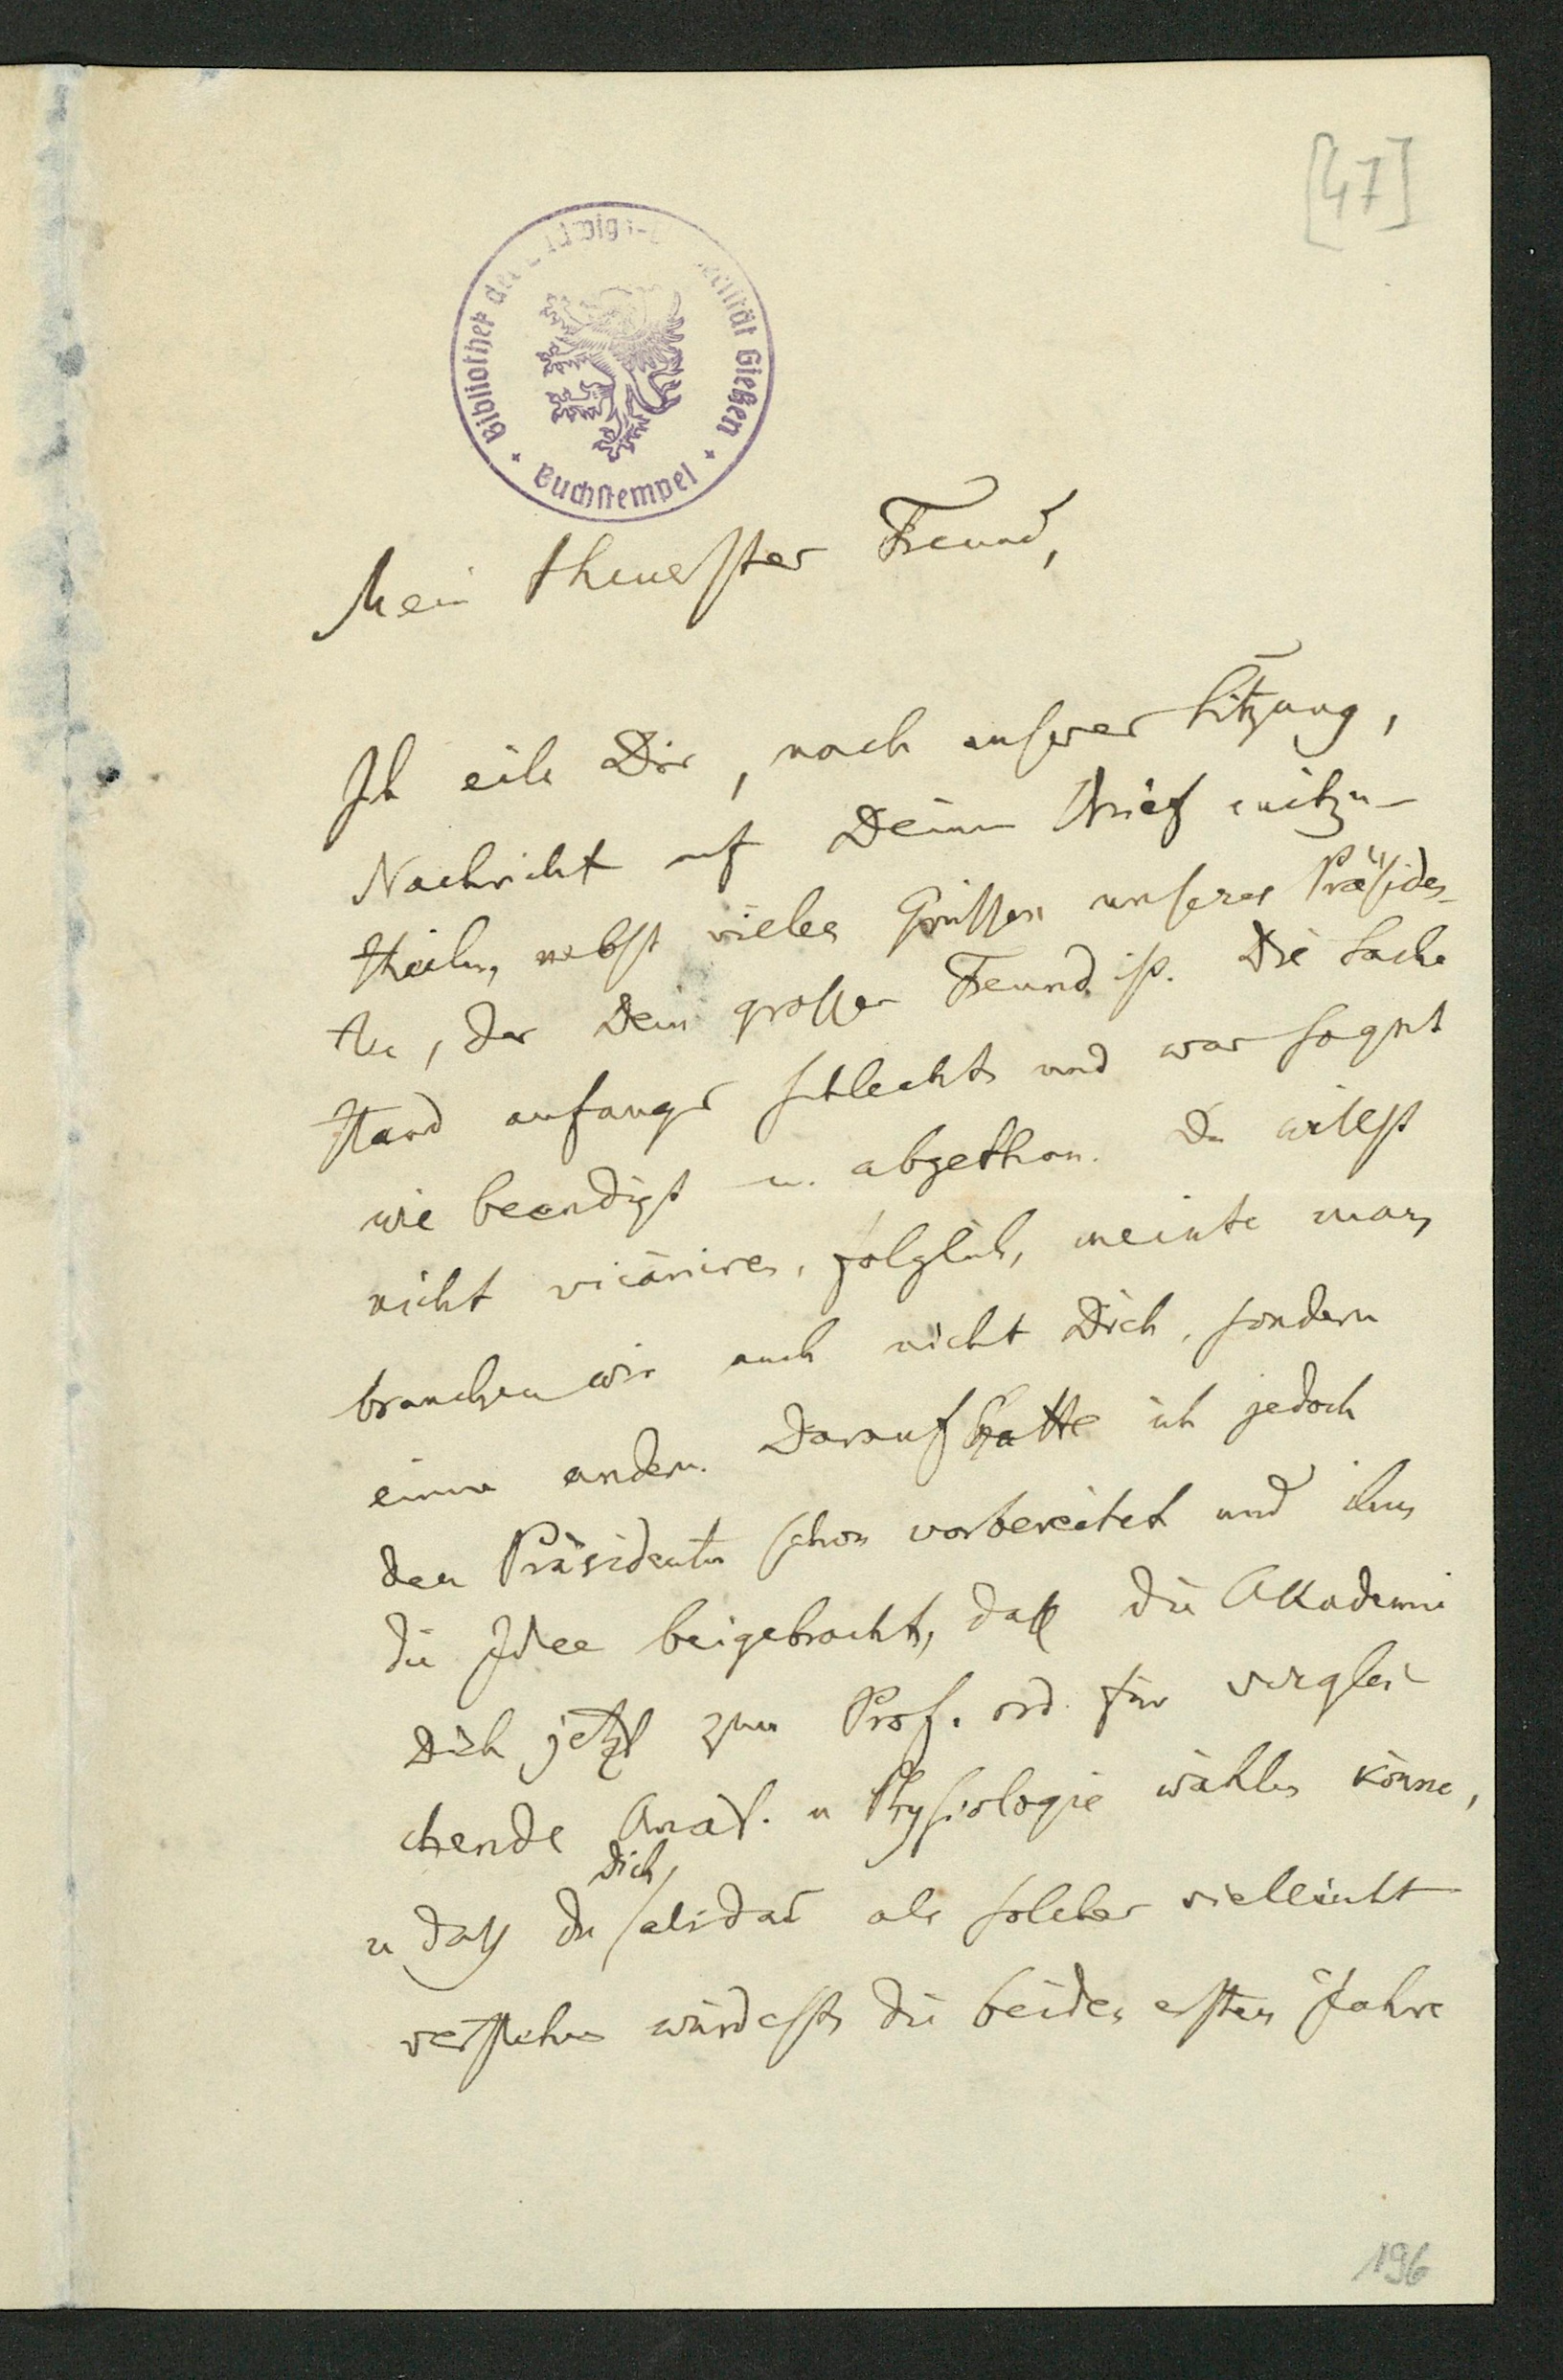 [47]
Bibliothek der Ludwigs-Universität Gießen
Buchstempel
Mein theuerster Freund,
Ich eile Dir, nach unserer Sitzung,
Nachricht auf Deinen Brief mitzu-
theilen, nebst vielen Grüssen unseres Präsiden-
ten, der Dein grosser Freund ist. Die Sache
stand anfangs schlecht und war so gut
wie beendigt u. abgethan. Du willst
nicht vicäriren, folglich, meinte man,
brauchen wir auch nicht Dich, sondern
einen andern. Darauf hatte ich jedoch
den Präsidenten schon vorbereitet und ihm
die Idee beigebracht, daß die Akademie
Dich jetzt zum Prof. ord. für verglei-
chende Anat. u Physiologie wählen könne,
u daß Du Dich als solcher vielleicht
verstehen würdest, die beiden ersten Jahre
196